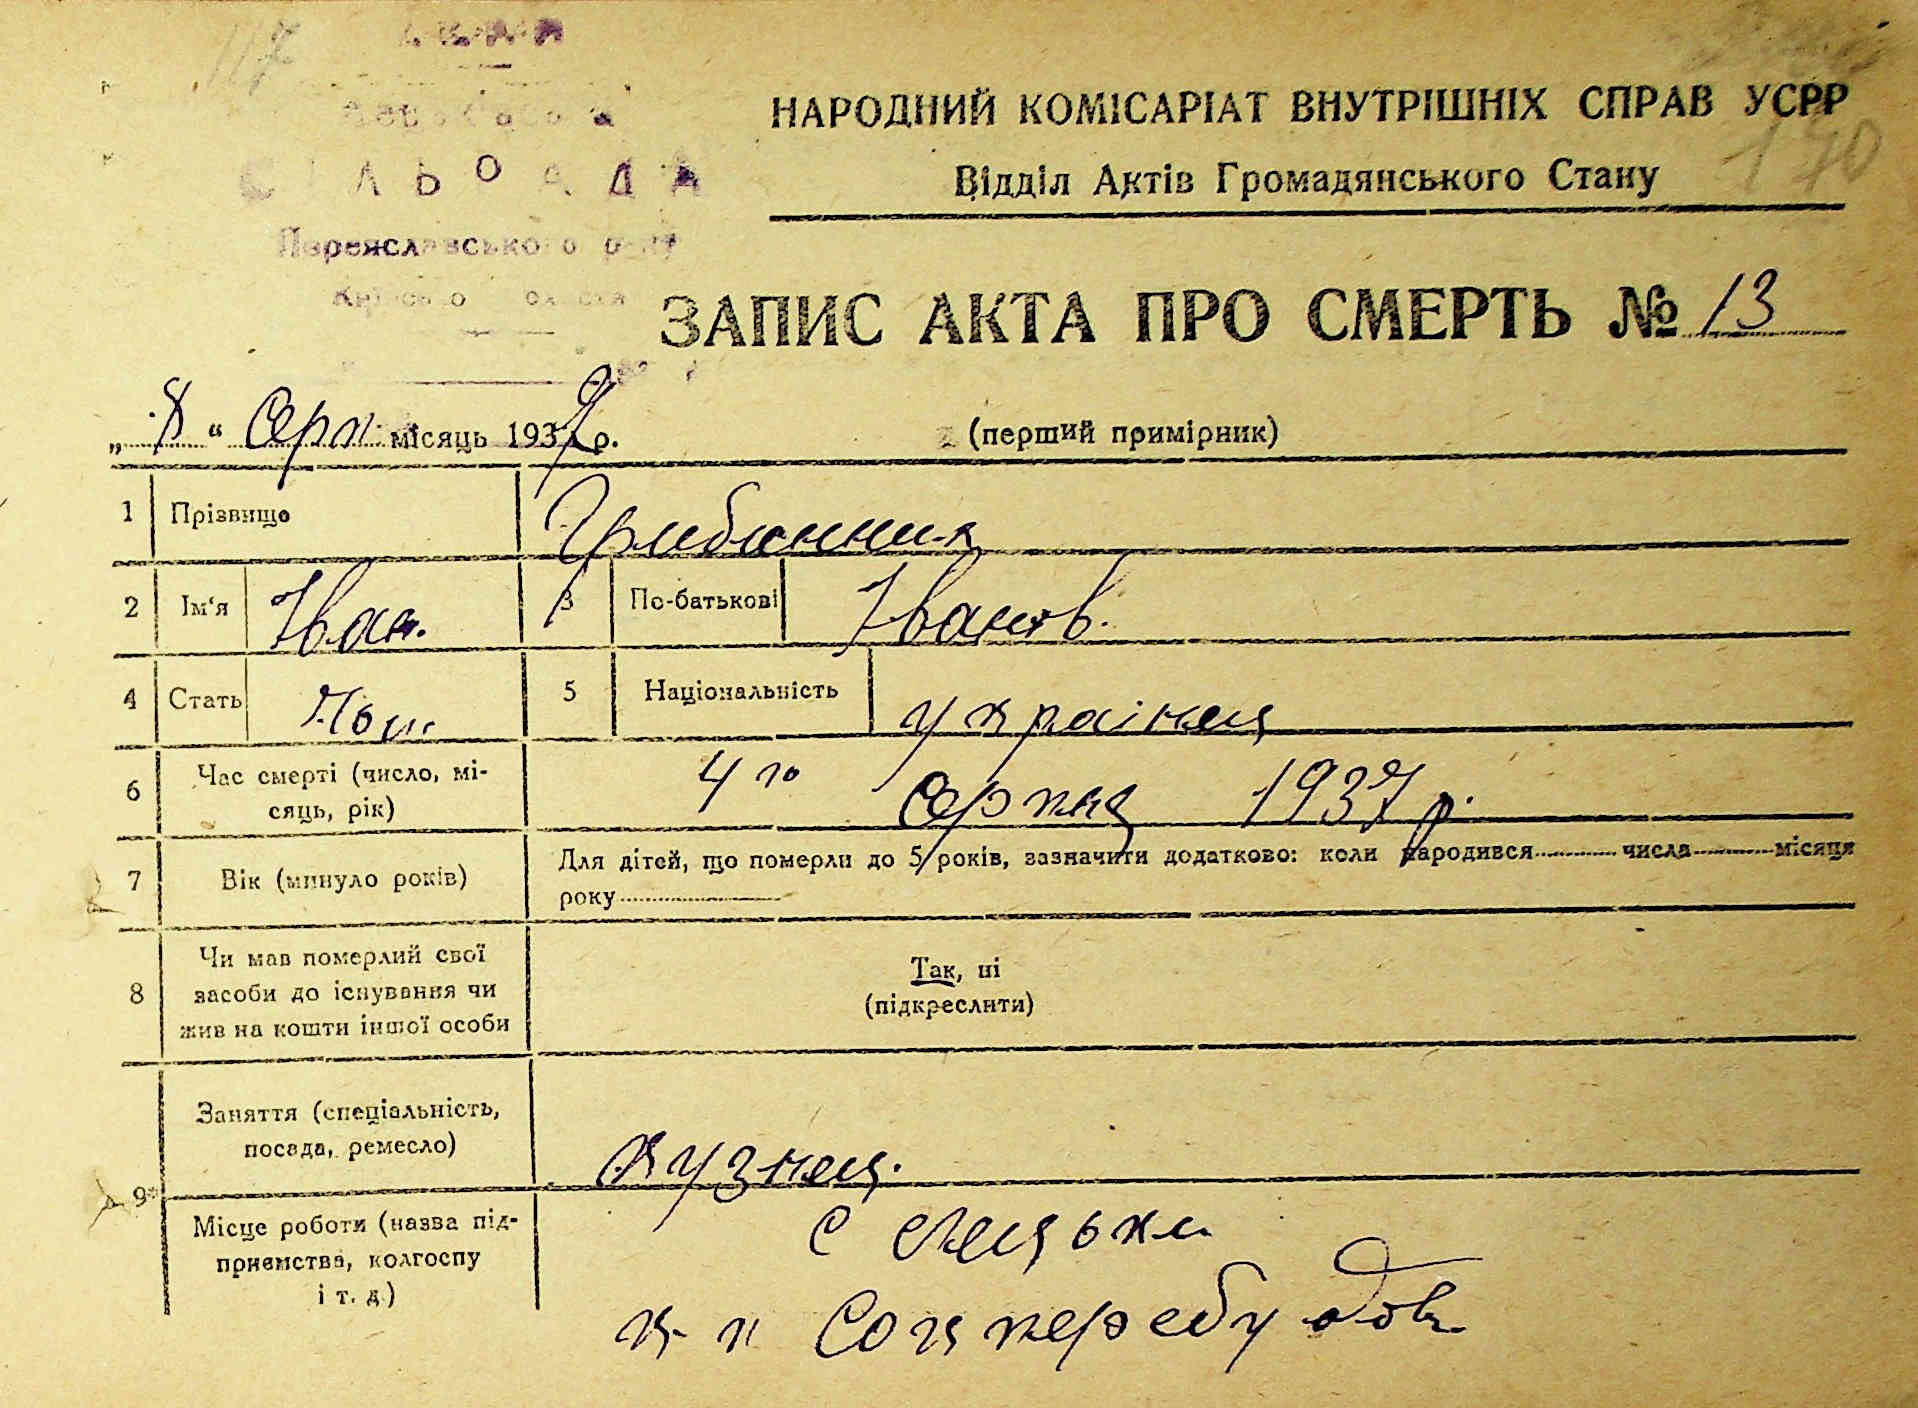 117
СІЛЬРАДА
НАРОДНИЙ КОМІСАРІАТ ВНУТРІШНІХ СПРАВ УСРР
Переяславського р-ну
Відділ Актів Громадянського Стану
190
ЗАПИС АКТА ПРО СМЕРТЬ № 13
„ 8 “ Серп. місяць 1937 р. (перший примірник)
1 Прізвище Грибинник
2 Ім'я Іван. 3 По-батькові Іванов.
4 Стать Чол. 5 Національність українец
6 Час смерті (число, мі-
сяць, рік) 4го Серпня 1937 р.
7 Вік (минуло років) Для дітей, що померли до 5 років, зазначити додатково: коли народився числа місяця
року
8 Чи мав померлий свої
засоби до існування чи
жив на кошти іншої особи
Так, ні
(підкреслити)
9* Заняття (спеціальність,
посада, ремесло) Кузнец.
Місце роботи (назва під-
приємства, колгоспу
і т. д.)
с
к-п Соцперебудова